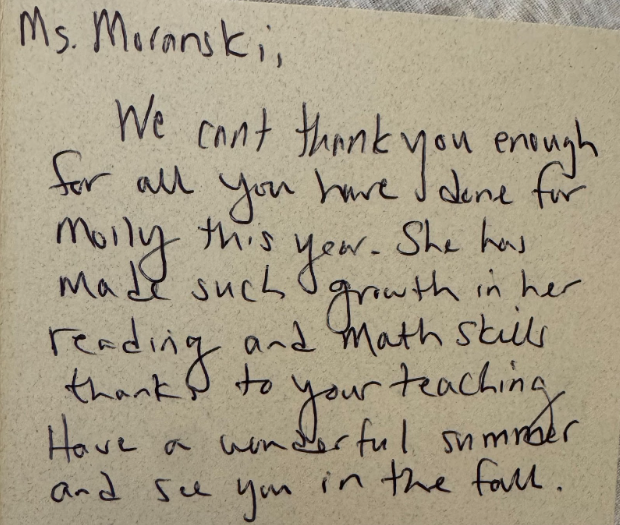 Ms. Moranski,
We cant thank you enough
for all you have done for
Molly this year. She has
made such growth in her
reading and math skills
thanks to your teaching
Have a wonderful summer
and see you in the fall.